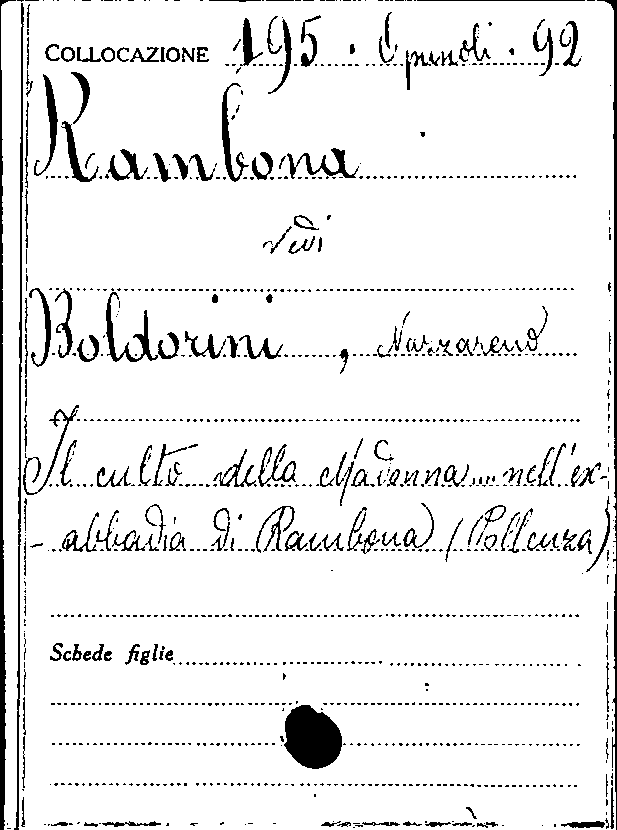 COLLOCAZIONE 195 . Opuscoli . 92
Rambona
vedi
Boldorini , Nazzareno
Il culto della Madonna .... nell'ex-
- abbadia di Rambona (Pollenza)
Schede figlie